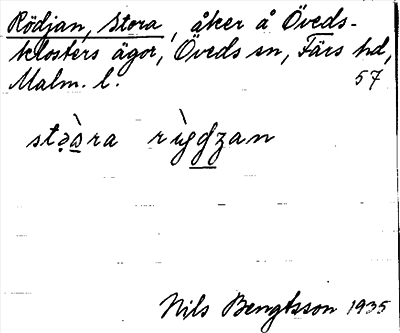 Rödjan, Stora, åker å Öveds-
klosters ägor, Öveds sn, Färs hd,
Malm. l. 57
stə̀ara rìgdzan
Nils Bengtsson 1935